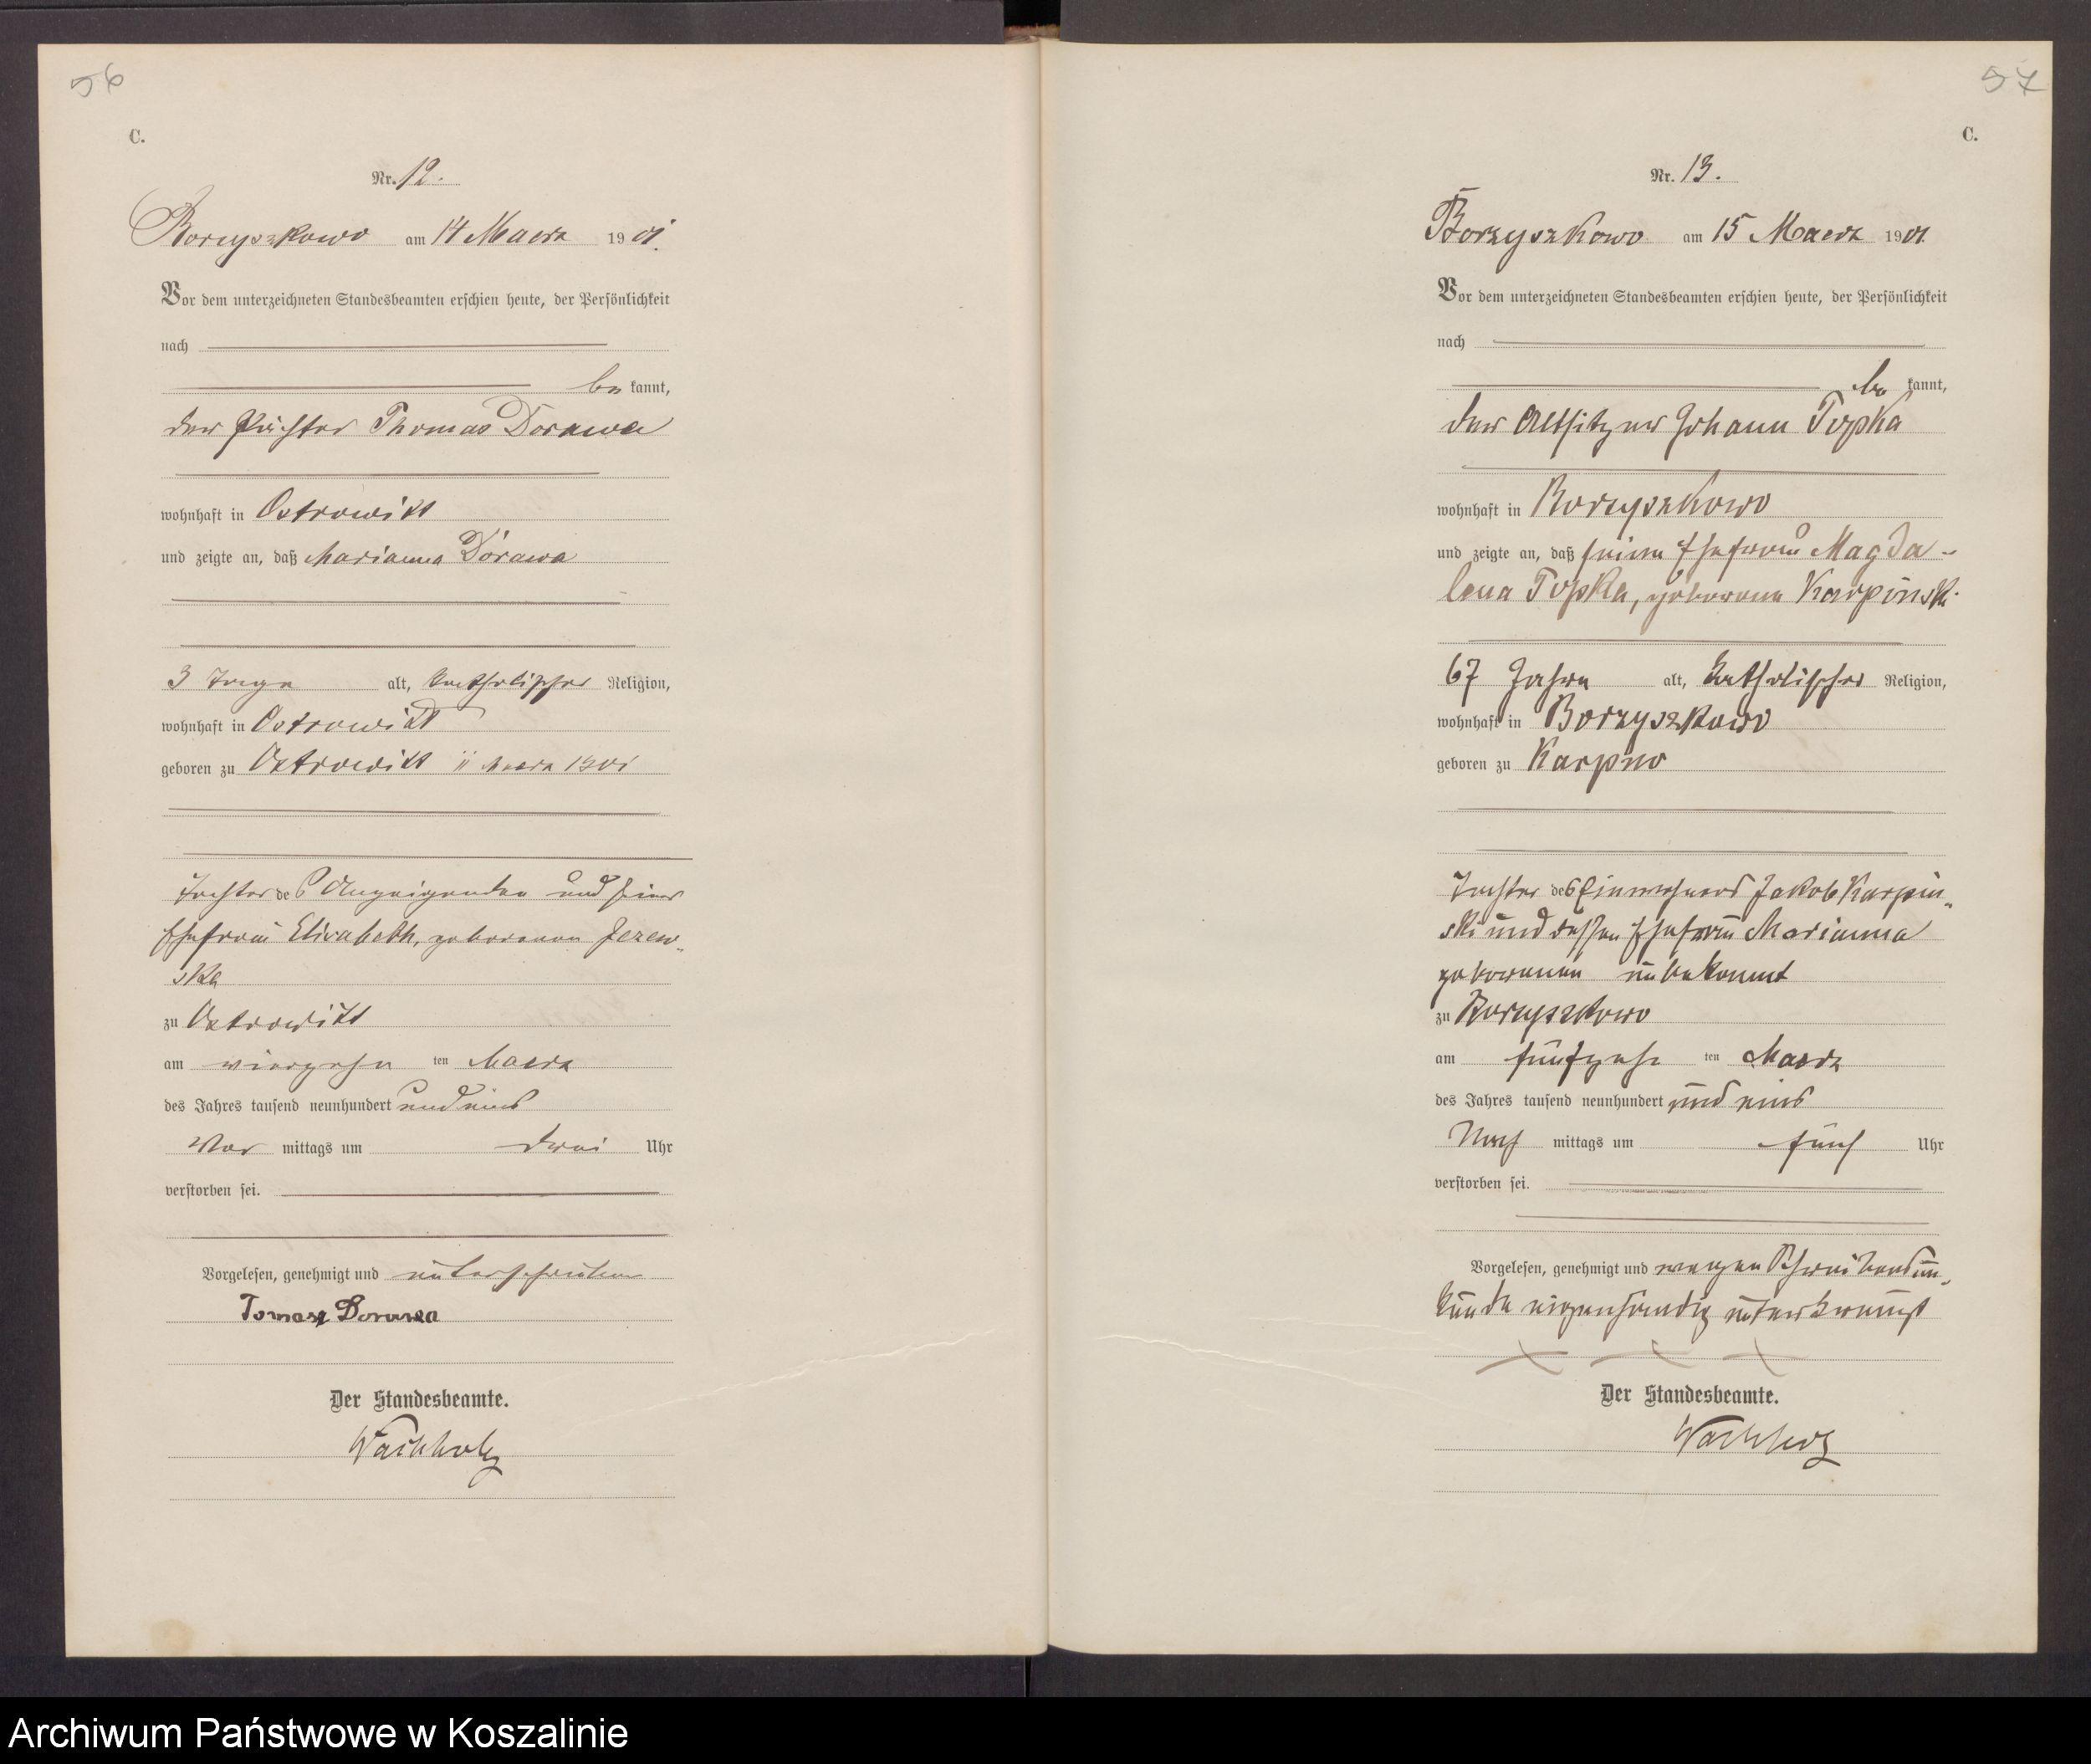 56
C.
Nr. 12.
Borzyszkowo am 14 Maerz 1901.
Vor dem unterzeichneten Standesbeamten erschien heute, der Persönlichkeit
nach
be kannt,
der Pächter Thomas Dorawa
wohnhaft in Ostrowitt
und zeigte an, daß Marianna Dorawa
3 Tage alt, katholischer Religion,
wohnhaft in Ostrowitt
geboren zu Ostrowitt 11 Maerz 1901
Tochter des Anzeigenden und seiner
Ehefrau Elisabeth, geborenen Jezew-
ska
zu Ostrowitt
am vierzehn ten Maerz
des Jahres tausend neunhundert und eins
Vor mittags um drei Uhr
verstorben sei.
Vorgelesen, genehmigt und unterschrieben
Tomasz Dorawa
Der Standesbeamte.
Wachholz
57
C.
Nr. 13.
Borzyszkowo am 15 Maerz 1901.
Vor dem unterzeichneten Standesbeamten erschien heute, der Persönlichkeit
nach
be kannt,
der Altsitzer Johann Topka
wohnhaft in Borzyszkowo
und zeigte an, daß seine Ehefrau Magda-
lena Topka, geborene Karpinski
67 Jahre alt, katholischer Religion,
wohnhaft in Borzyszkowo
geboren zu Karpno
Tochter des Einwohners Jakob Karpin-
ski und dessen Ehefrau Marianna
geborenen unbekannt
zu Borzyszkowo
am fünfzehn ten Maerz
des Jahres tausend neunhundert und eins
Nach mittags um fünf Uhr
verstorben sei.
Vorgelesen, genehmigt und wegen Schreibensun-
kunde eigenhändig unterkreuzt
X X X
Der Standesbeamte.
Wachholz
Archiwum Państwowe w Koszalinie